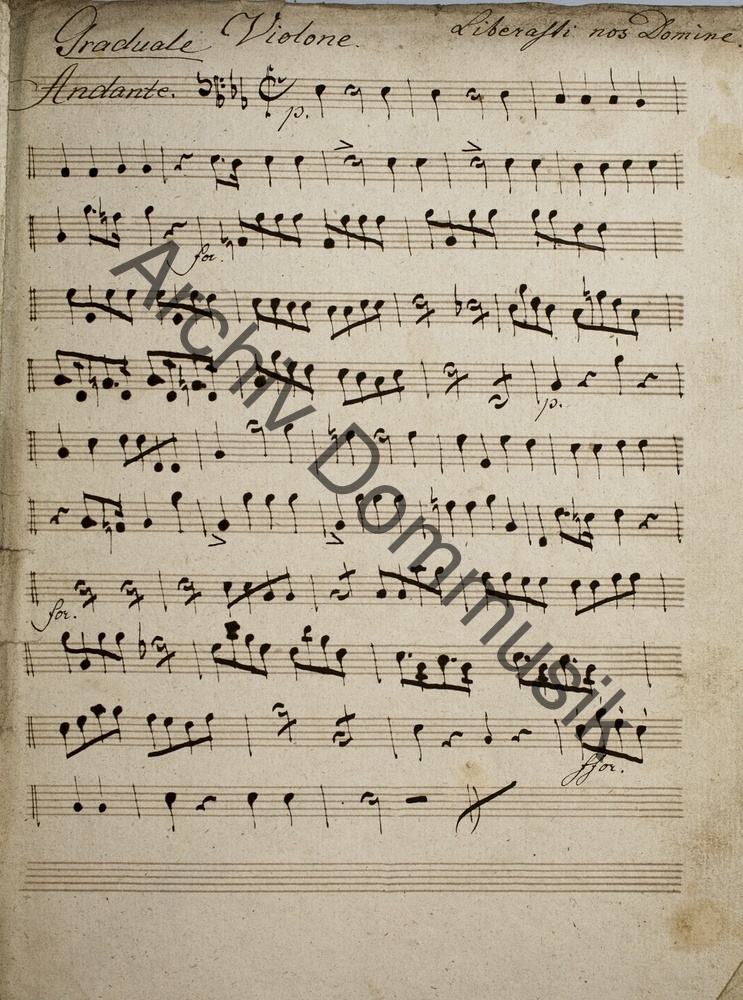 Graduale Violone. Liberasti nos Domine.
Andante.
p.
for.
p.
for.
ffor.
Archiv Dommusik